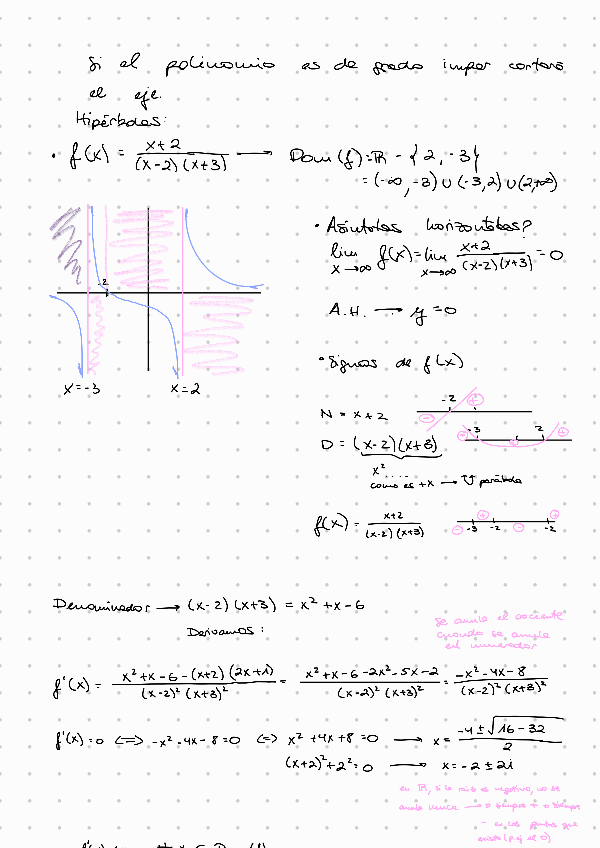 Si el polinomio es de grado impar cortará
el eje.
Hipérbolas:
• f(x) = x+2 / (x-2)(x+3) → Dom(f) = ℝ - {2, -3}
= (-∞, -3) ∪ (-3, 2) ∪ (2, +∞)
• Asíntotas horizontales?
lim x→∞ f(x) = lim x→∞ x+2 / (x-2)(x+3) = 0
A.H. → y = 0
-2
x = -3
x = 2
• Signos de f(x)
N = x+2
-2
- +
D = (x-2)(x+3)
+ -3 - 2 +
x² ....
como es +x → U parábola
f(x) = x+2 / (x-2)(x+3)
- -3 + -2 - -2 +
Denominador → (x-2)(x+3) = x² + x - 6
Derivamos:
Se anula el cociente
cuando se anula
el numerador
f'(x) = x² + x - 6 - (x+2)(2x+1) / (x-2)² (x+3)² = x² + x - 6 - 2x² - 5x - 2 / (x-2)² (x+3)² = -x² - 4x - 8 / (x-2)² (x+3)²
f'(x) = 0 ⟺ -x² - 4x - 8 = 0 ⟺ x² + 4x + 8 = 0 → x = -4 ± √16 - 32 / 2
(x+2)² + 2² = 0 → x = -2 ± 2i
en ℝ, si la raíz es negativa, no se
anula nunca → o siempre + o siempre
- en los puntos que